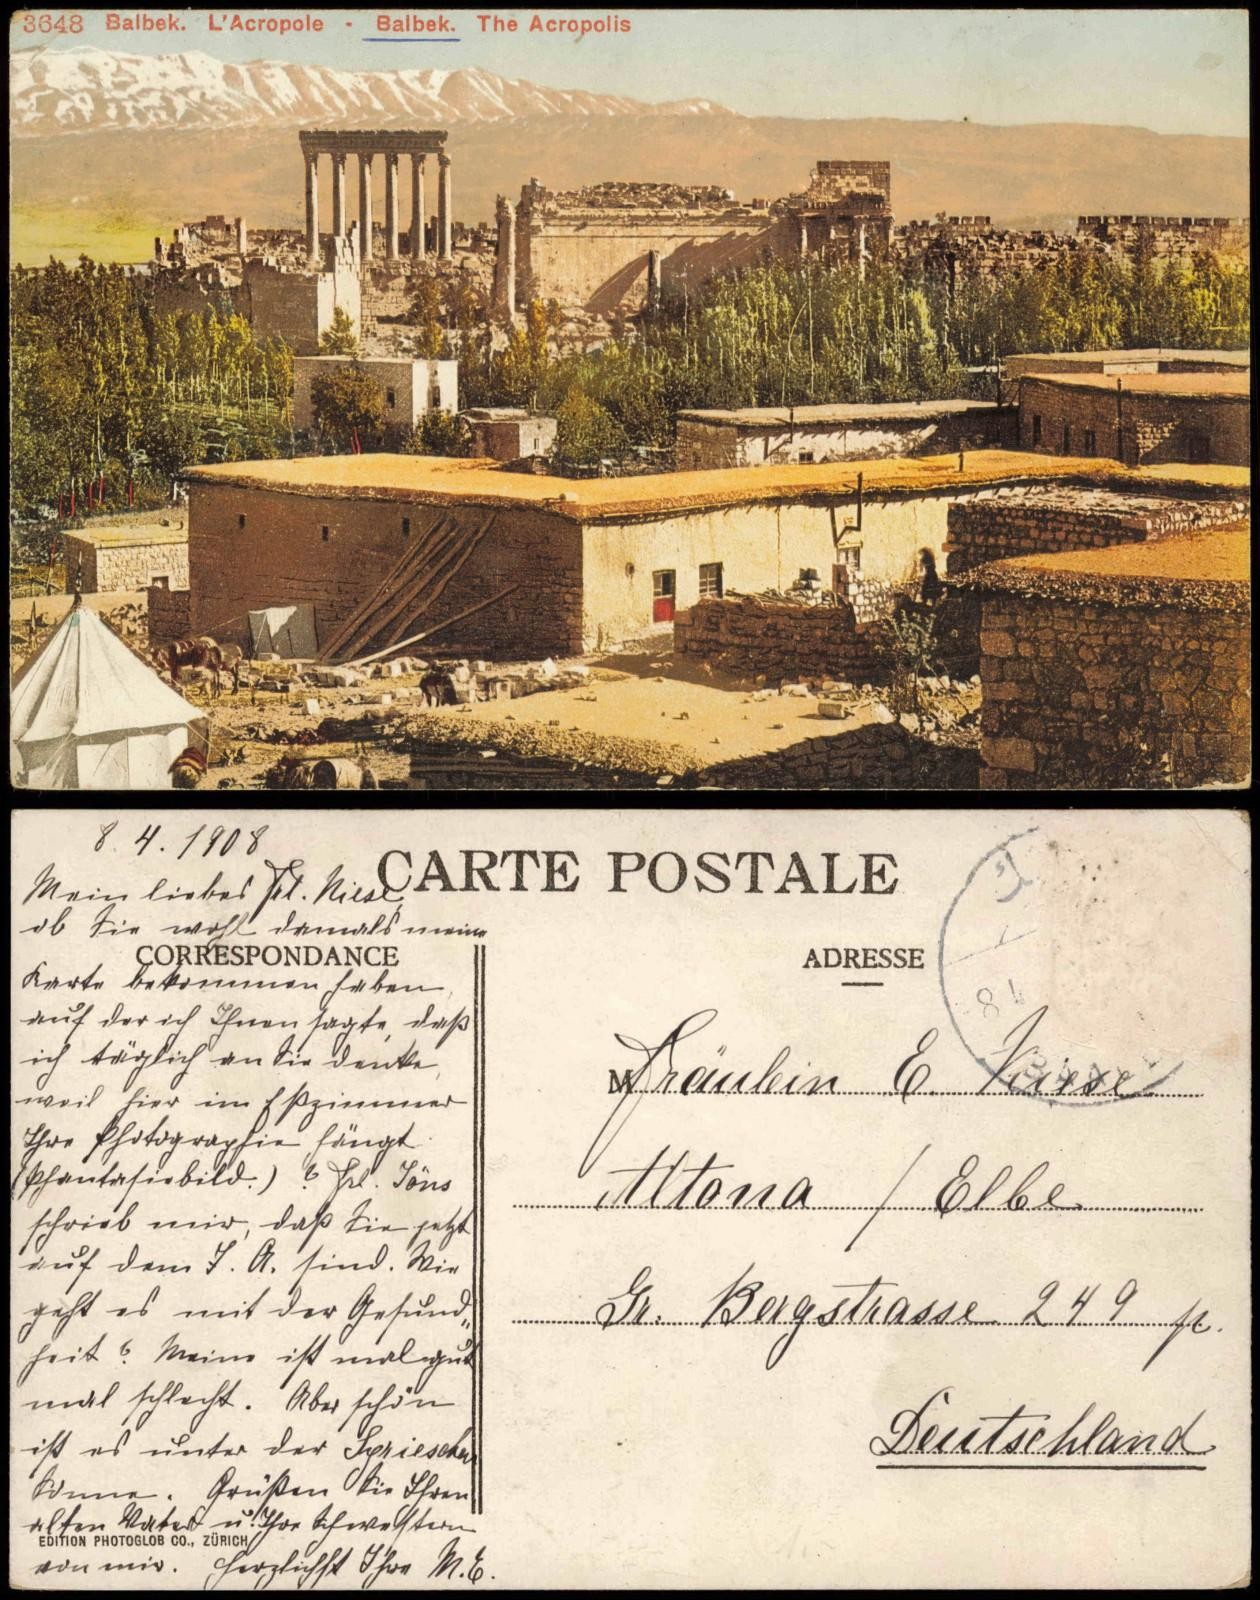 3648 Balbek. L'Acropole - Balbek. The Acropolis
8. 4. 1908
CARTE POSTALE
Mein liebes Frl. Niese,
ob Sie wohl damals meine
CORRESPONDANCE
Karte bekommen haben,
auf der ich Ihnen sagte, daß
ich täglich an Sie denke,
weil hier im Eßzimmer
Ihre Photographie hängt
(Phantasiebild.)? Frl. Jöns
schrieb mir, daß Sie jetzt
auf dem J. A. sind. Wie
geht es mit der Gesund-
heit? Meine ist mal gut
mal schlecht. Aber schön
ist es unter der Syrischen
Sonne. Grüßen Sie Ihren
alten Vater u. Ihre Schwestern
EDITION PHOTOGLOB CO., ZÜRICH
von mir. Herzlichst Ihre M.E.
ADRESSE
M Fräulein E. Niese
Altona / Elbe
Gr. Bergstrasse 249 pt.
Deutschland